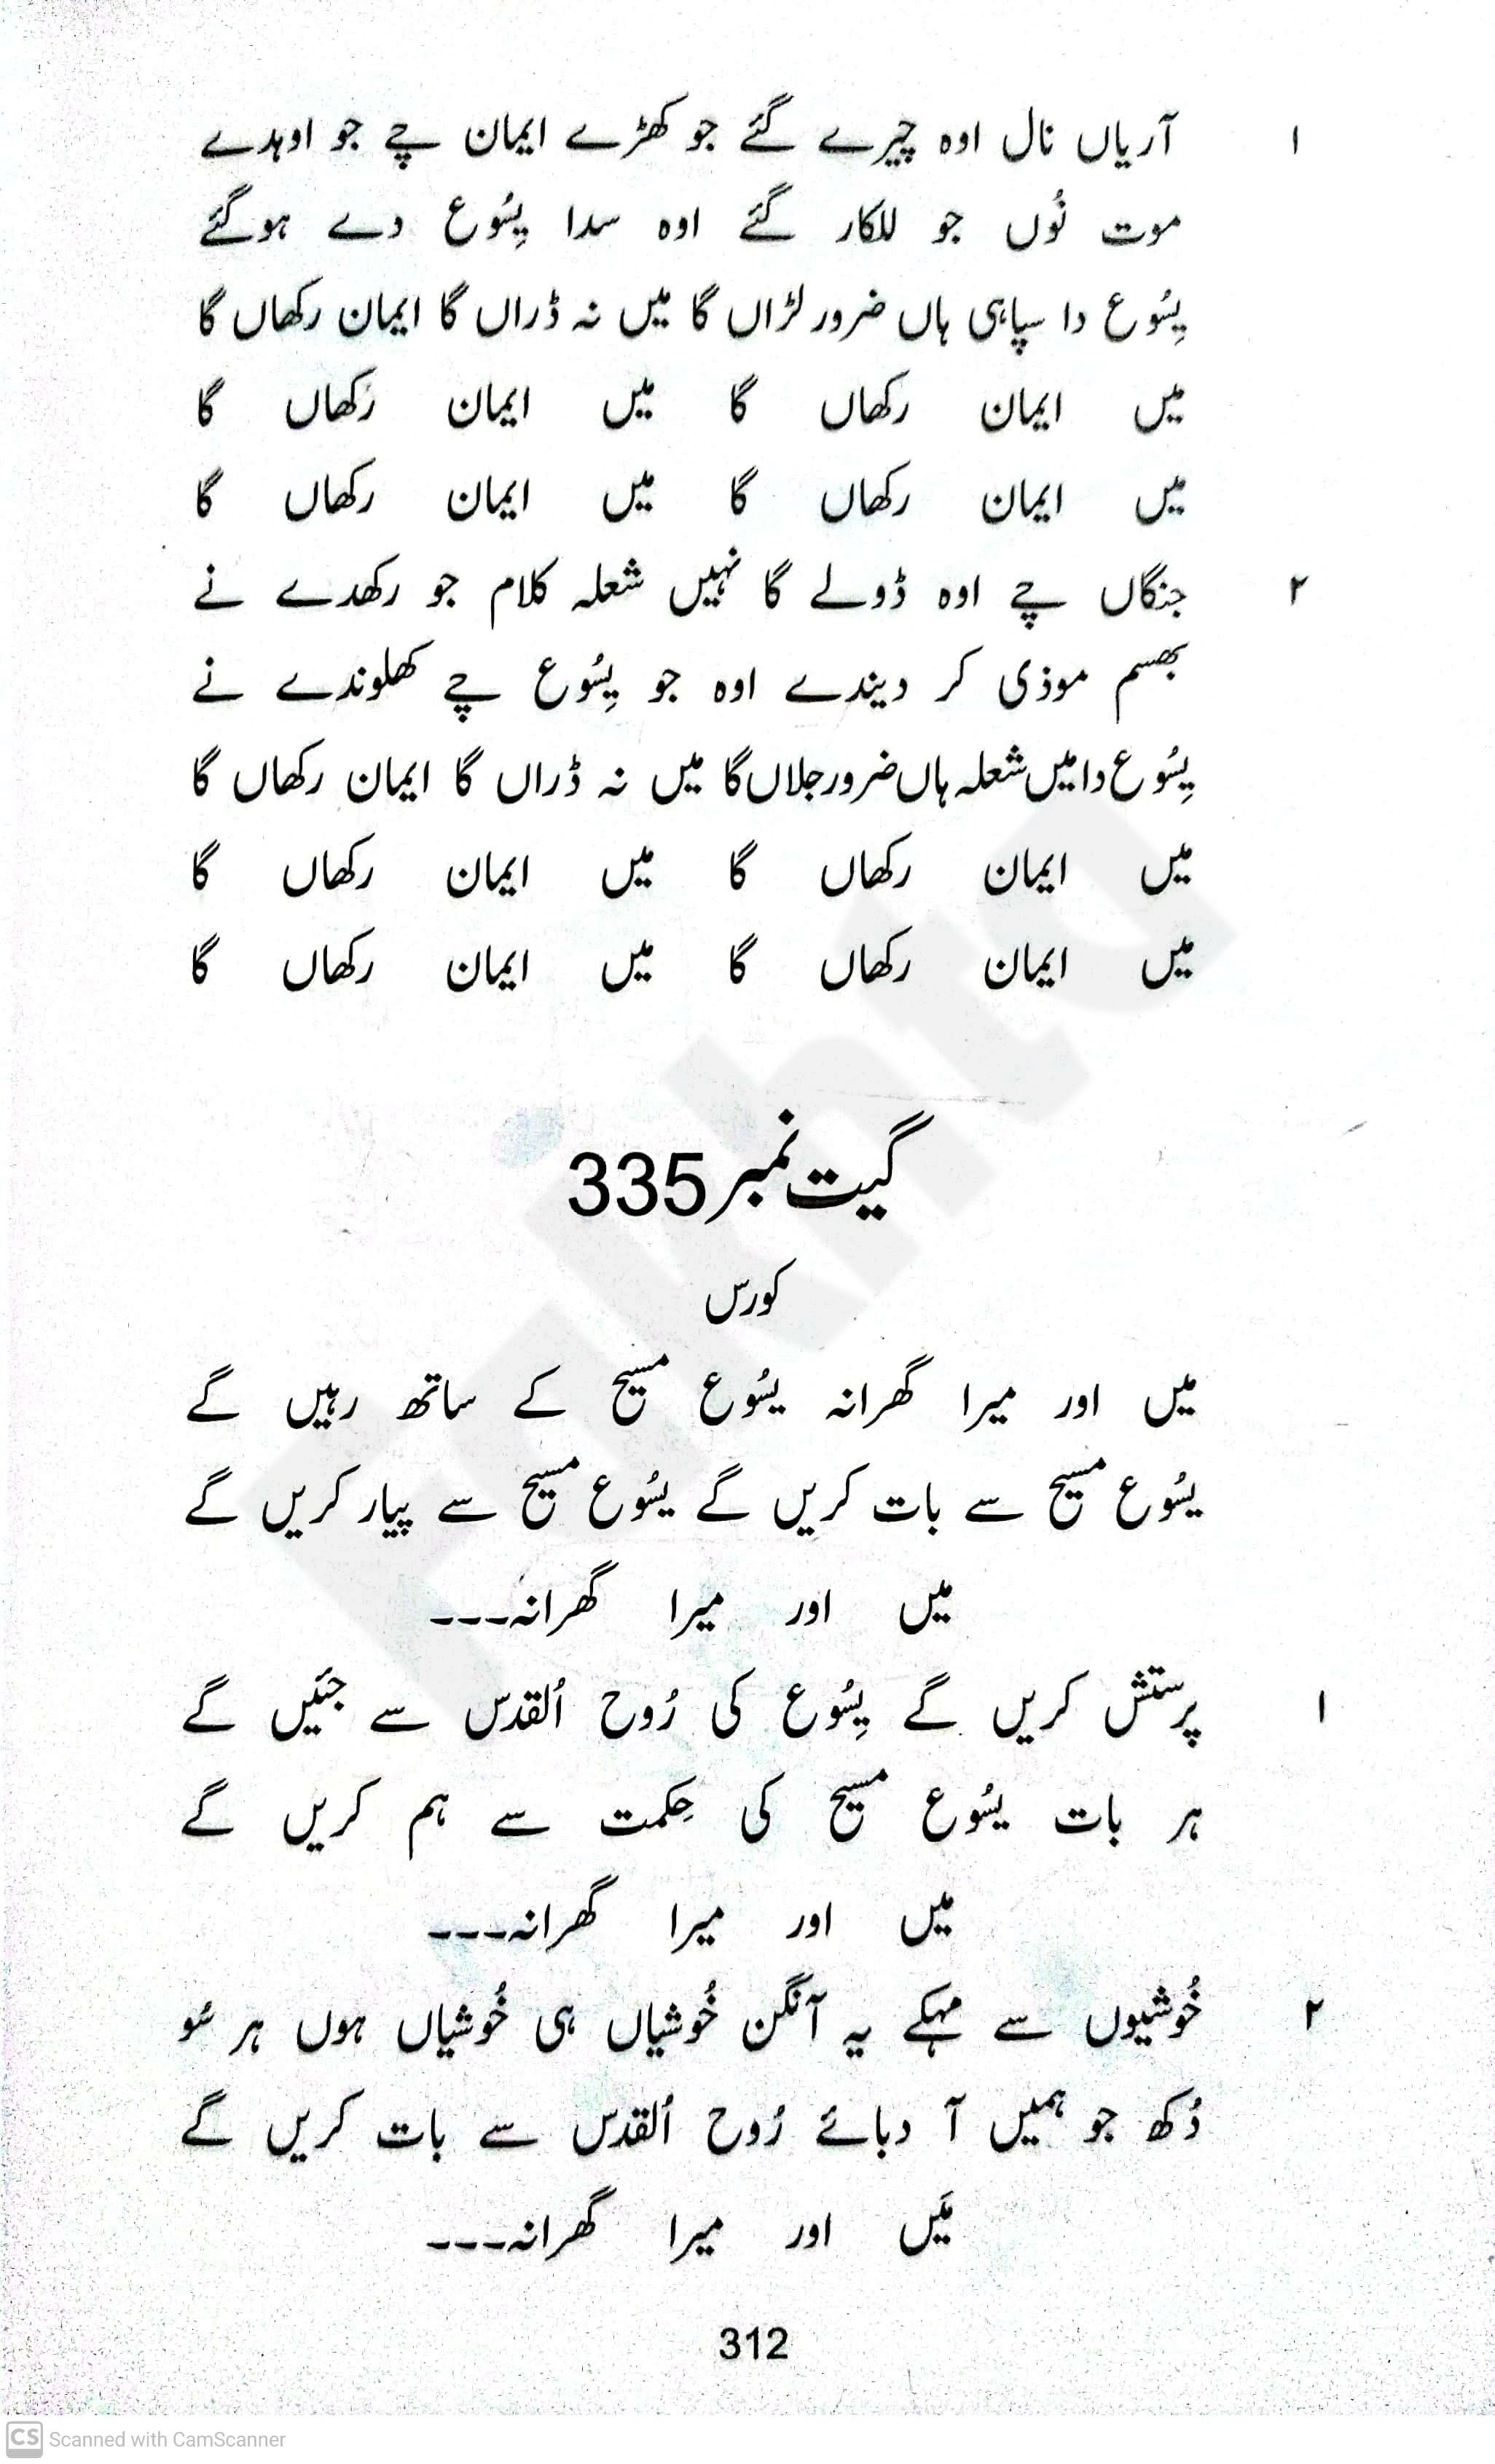 ۱ آریاں نال اوہ چیرے گئے جو کھڑے ایمان چے جو اوہدے
موت نُوں جو للکار گئے اوہ سدا یِسُوع دے ہوگئے
یِسُوع دا سپاہی ہاں ضرور لڑاں گا میں نہ ڈراں گا ایمان رکھاں گا
میں ایمان رکھاں گا میں ایمان رکھاں گا
میں ایمان رکھاں گا میں ایمان رکھاں گا
۲ جنگاں چے اوہ ڈولے گا نہیں شعلہ کلام جو رکھدے نے
بھسم موذی کر دیندے اوہ جو یِسُوع چے کھلوندے نے
یِسُوع دا میں شعلہ ہاں ضرور جلاں گا میں نہ ڈراں گا ایمان رکھاں گا
میں ایمان رکھاں گا میں ایمان رکھاں گا
میں ایمان رکھاں گا میں ایمان رکھاں گا
گیت نمبر 335
کورس
میں اور میرا گھرانہ یسُوع مسیح کے ساتھ رہیں گے
یسُوع مسیح سے بات کریں گے یسُوع مسیح سے پیار کریں گے
میں اور میرا گھرانہ۔۔۔
۱ پرستش کریں گے یِسُوع کی رُوح اُلقدس سے جئیں گے
ہر بات یسُوع مسیح کی حِکمت سے ہم کریں گے
میں اور میرا گھرانہ۔۔۔
۲ خُوشیوں سے مہکے یہ آنگن خُوشیاں ہی خُوشیاں ہوں ہر سُو
دُکھ جو ہمیں آ دبائے رُوح اُلقدس سے بات کریں گے
مَیں اور میرا گھرانہ۔۔۔
312
CS Scanned with CamScanner